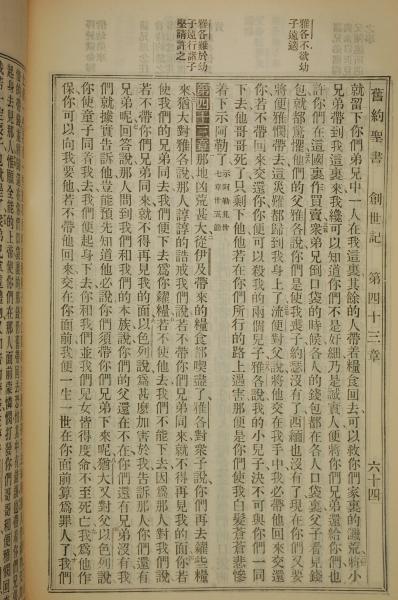 舊約聖書 創世記 第四十三章 六十四
雅各不欲幼
子遠適
雅各難於幼
子遠行諸子
堅請許之
就留下你們弟兄中一人在我這裏其餘的人帶着糧食回去可以救你們家裏的饑荒將小
兄弟帶到我這裏來我纔可以知道你們不是奸細乃是誠實人便將你們兄弟還給你們也
許你們在這國裏作買賣衆弟兄倒口袋的時候各人的錢包都在各人口袋裏父子看見錢
包就都驚懼他們的父雅各說你們是使我喪子約瑟沒有了西緬也沒有了現在你們又要
將便雅憫帶去這災難都歸到我身上了流便對父說將他交在我手中我必帶他回來交還
你若不帶回來交還你你便可以殺我的兩個兒子雅各說我的小兒子決不可與你們一同
下去他哥哥死了只剩下他他若在你們所行的路上遇害那便是你們使我白髮蒼蒼悲慘
着下示阿勒了 示阿勒見卅七章卅五節
第四十三章那地凶荒甚大從伊及帶來的糧食都喫盡了雅各對衆子說你們再去糴些糧
來猶大對雅各說那人諄諄的誥戒我們說若不帶你們兄弟同來就不得再見我的面你若
使我們的兄弟同去我們便下去爲你糴糧若不使他去我們不能下去因爲那人對我們說
若不帶你們兄弟同來就不得再見我的面以色列說爲甚麼加害於我告訴那人你們還有
兄弟呢回答說那人問到我們和我們的本族說你們的父還在不在你們還有兄弟沒有我
們就據實告訴他豈能預先知道他必說你們須帶你們兄弟下來呢猶大又對父以色列說
你使童子同着我去我們便起身下去你和我們並我們兒女皆得度命不至死亡我爲他作
保你可以向我要他若不帶他回來交在你面前我便一生一世在你面前算爲罪人了我們